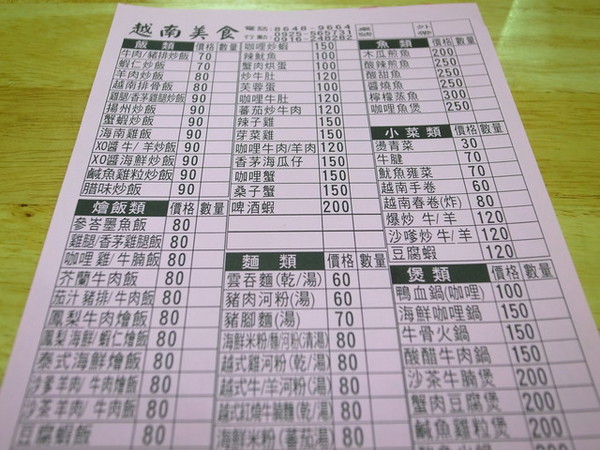 越南美食
電話:8648-9664
行動:0925-565731
0916-282282
飯類 價格 數量
牛肉/豬排炒飯 70
蝦仁炒飯 70
羊肉炒飯 80
越南排骨飯 80
雞腿/香茅雞腿炒飯 90
揚州炒飯 90
蟹蝦炒飯 90
海南雞飯 90
XO醬牛/羊炒飯 90
XO醬海鮮炒飯 90
鹹魚雞粒炒飯 90
臘味炒飯 90
燴飯類 價格 數量
參峇墨魚飯 80
雞腿/香茅雞腿飯 80
咖哩 雞/牛腩飯 80
芥蘭牛肉飯 80
茄汁 豬排/牛肉飯 80
鳳梨牛肉燴飯 80
鳳梨海鮮/蝦仁燴飯 80
泰式海鮮燴飯 80
沙爹羊肉/牛肉燴飯 80
沙茶羊肉/牛肉飯 80
豆腐蝦飯 80
咖哩炒蝦 150
辣魷魚 100
蟹肉烘蛋 100
炒牛肚 120
芙蓉蛋 100
咖哩牛肚 120
蕃茄炒牛肉 120
辣子雞 150
芽菜雞 150
咖哩牛肉/羊肉 120
香茅海瓜仔 150
咖哩蟹 150
桑子蟹 150
啤酒蝦 200
麵類 價格 數量
雲吞麵(乾/湯) 60
豬肉河粉(湯) 60
豬腳麵(湯) 70
越式雞河粉(乾/湯) 80
越式牛/羊河粉(湯) 80
越式紅燒牛腩麵(乾/湯) 80
海鮮米粉(蕃茄湯) 80
魚類 價格 數量
木瓜煎魚 200
酸辣煎魚 250
酸甜魚 250
醬燒魚 250
檸檬蒸魚 250
咖哩魚煲 250
小菜類 價格 數量
燙青菜 30
牛腱 70
魷魚蕹菜 70
越南手卷 60
越南春卷(炸) 80
爆炒 牛/羊 120
沙嗲炒 牛/羊 120
豆腐蝦 120
煲類 價格 數量
鴨血鍋(咖哩) 100
海鮮咖哩鍋 150
牛骨火鍋 150
酸醋牛肉鍋 150
沙茶牛腩煲 200
蟹肉豆腐煲 200
鹹魚雞粒煲 200